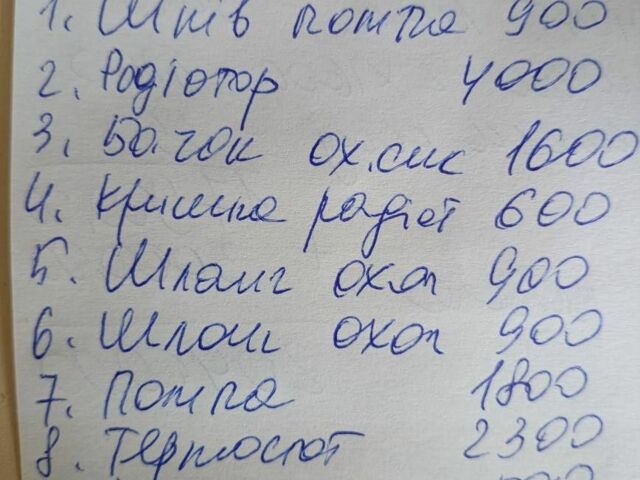 1. Шків помпа 900
2. Радіотор 4000
3. Бачок ох.сис 1600
4. Кришка радіат 600
5. Шланг охол 900
6. Шланг охол 900
7. Помпа 1800
8. Термостат 2300